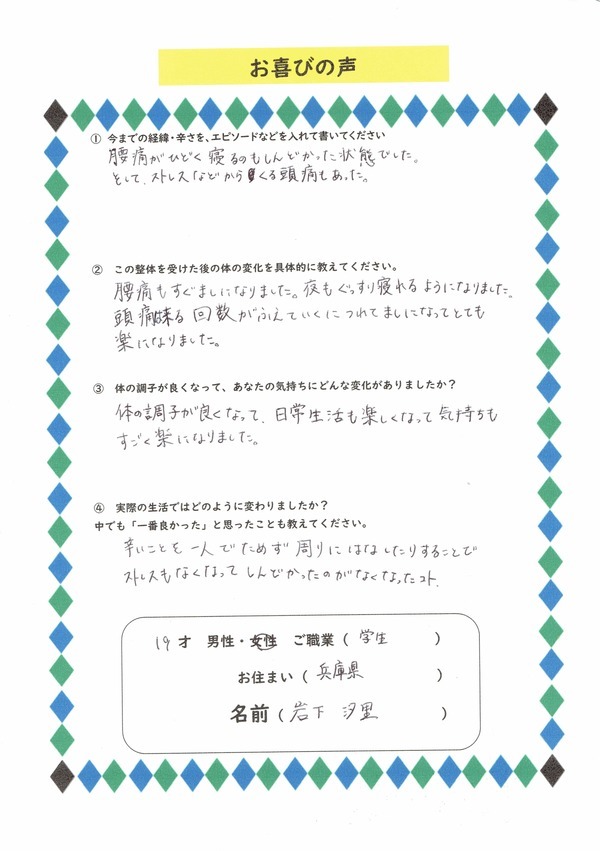 お喜びの声
① 今までの経緯・辛さを、エピソードなどを入れて書いてください
腰痛がひどく寝るのもしんどかった状態でした。
そして、ストレスなどからくる頭痛もあった。
② この整体を受けた後の体の変化を具体的に教えてください。
腰痛もすぐましになりました。夜もぐっすり寝れるようになりました。
頭痛も来る回数がふえていくにつれてましになってとても
楽になりました。
③ 体の調子が良くなって、あなたの気持ちにどんな変化がありましたか？
体の調子が良くなって、日常生活も楽しくなって気持ちも
すごく楽になりました。
④ 実際の生活ではどのように変わりましたか？
中でも「一番良かった」と思ったことも教えてください。
辛いことを一人でためず周りにはなしたりすることで
ストレスもなくなってしんどかったのがなくなったコト。
19才 男性・女性 ご職業（学生）
お住まい（兵庫県）
名前（岩下 汐里）